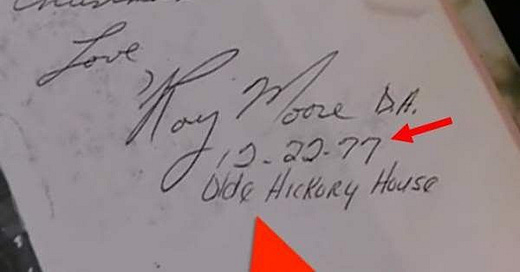 Love
Roy Moore D.A.
12-22-77
Olde Hickory House